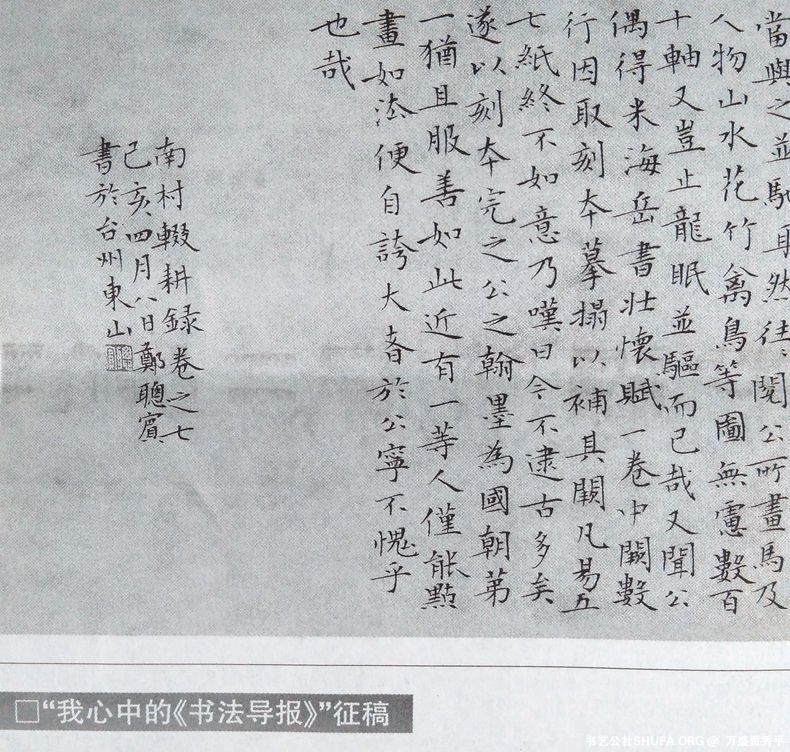 當與之並馳耳然往往閱公所畫馬及
人物山水花竹禽鳥等圖無慮數百
十軸又豈止龍眠並驅而已哉又聞公
偶得米海岳書壯懷賦一卷中闕數
行因取刻本摹搨以補其闕凡易五
七紙終不如意乃嘆曰今不逮古多矣
遂以刻本完之公之翰墨為國朝第
一猶且服善如此近有一等人僅能點
畫如法便自誇大者於公寧不愧乎
也哉
南村輟耕録卷之七
己亥四月八日鄭聰賓
書於台州東山
□“我心中的《书法导报》”征稿
书艺公社SHUFA.ORG @ 万盛贡秀平